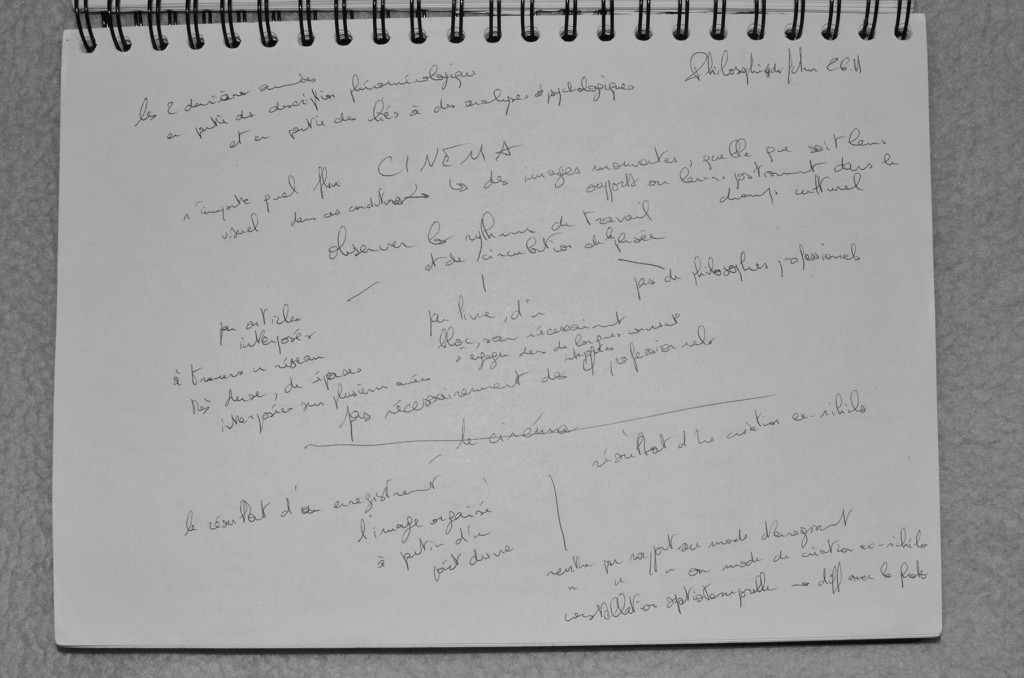 Philosophie 26.11
les 2 dernières années
en partie des description phénoménologique
et en partie des liés à des analyses psychologiques
CINÉMA
n'importe quel flux
visuel dans ces conditions
↳ des images mouvantes, quelle que soit leurs
rapports ou leurs positionnement dans le
champ culturel
observer les rythmes de travail
et de circulation de pensée
pas de philosophes professionnels
par articles
interposés
à travers un réseau
très dense, de épaces
interposées sur plusieurs années
par livre, d'un
bloc, sans nécessairement
s'engager dans de longues
pas nécessairement des φ professionnels
le cinéma
le résultat d'un enregistrement
l'image organisée
à partir d'un
point de vue
résultat d'une création ex-nihilo
par rapport au mode d'enregistrement
" " " au mode de création ex-nihilo
constellation spatiotemporelle → diff avec la photo